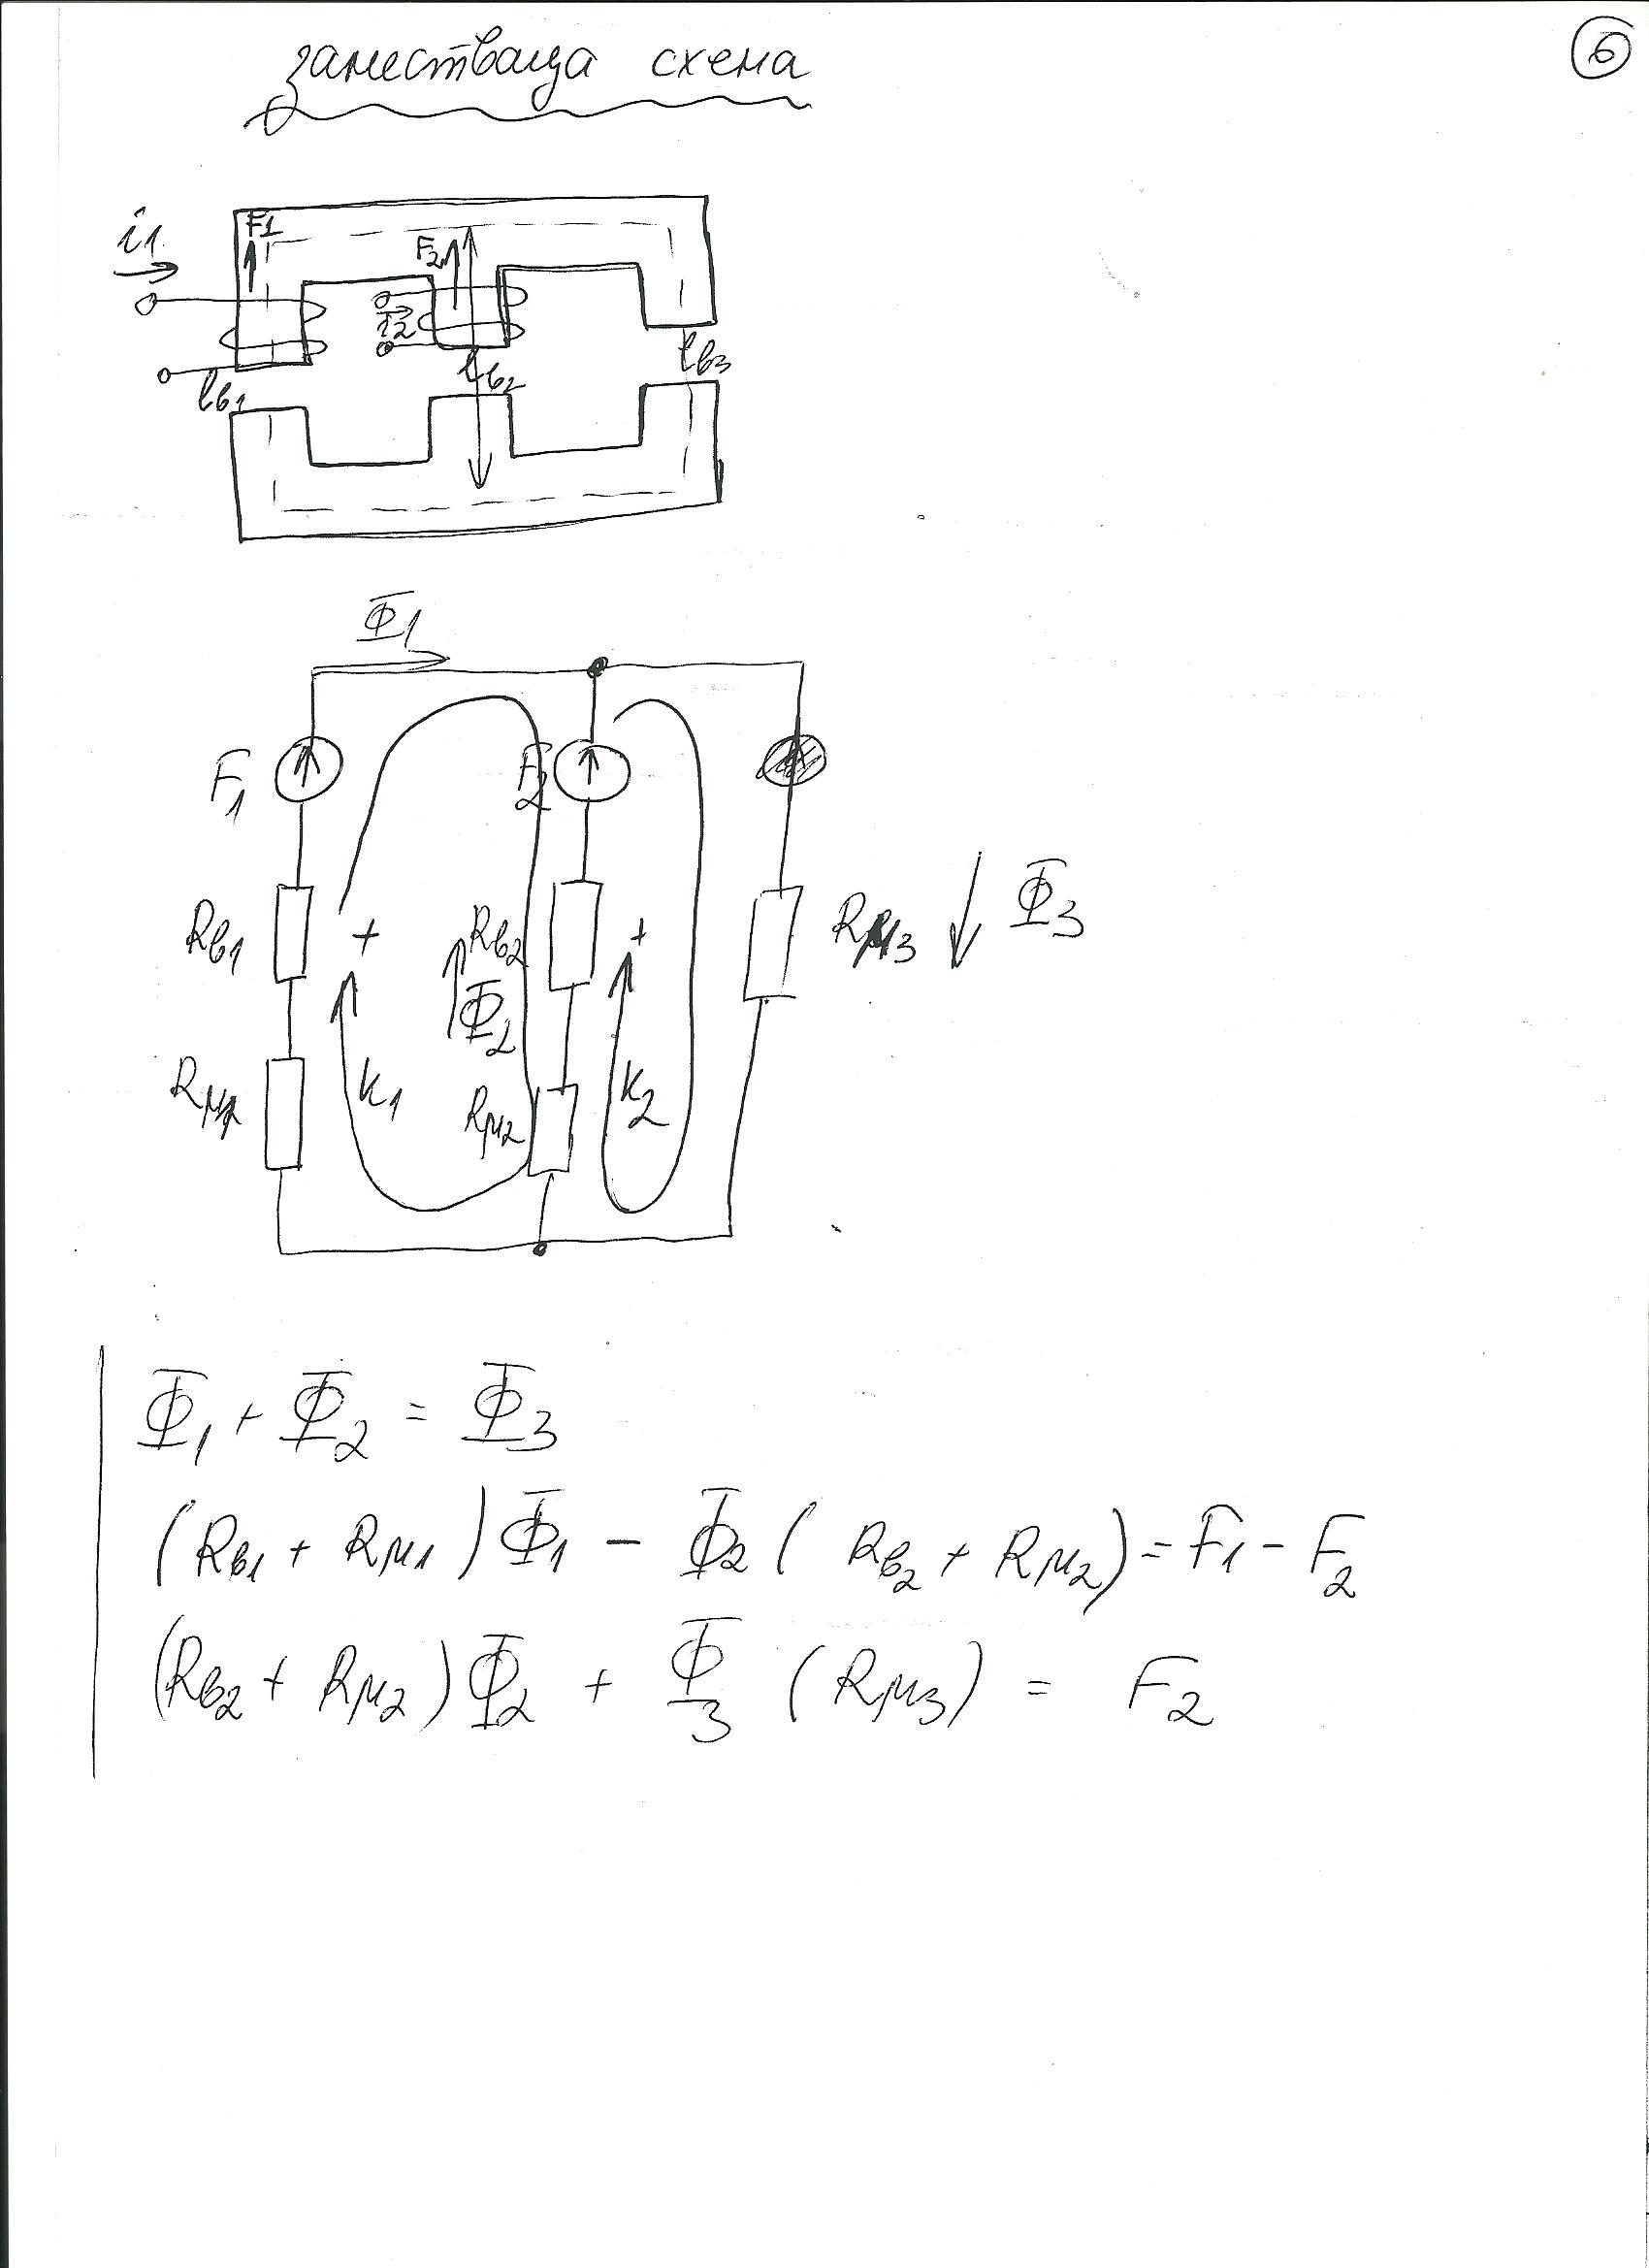 заместваща схема
6
i1
F1
F2
i2
lв1
lв2
lв3
Ф1
F1
F2
Rв1
+
Rв2
+
Rμ3
Ф3
Ф2
Rμ1
k1
Rμ2
k2
Ф1 + Ф2 = Ф3
(Rв1 + Rμ1)Ф1 - Ф2(Rв2 + Rμ2) = F1 - F2
(Rв2 + Rμ2)Ф2 + Ф3(Rμ3) = F2